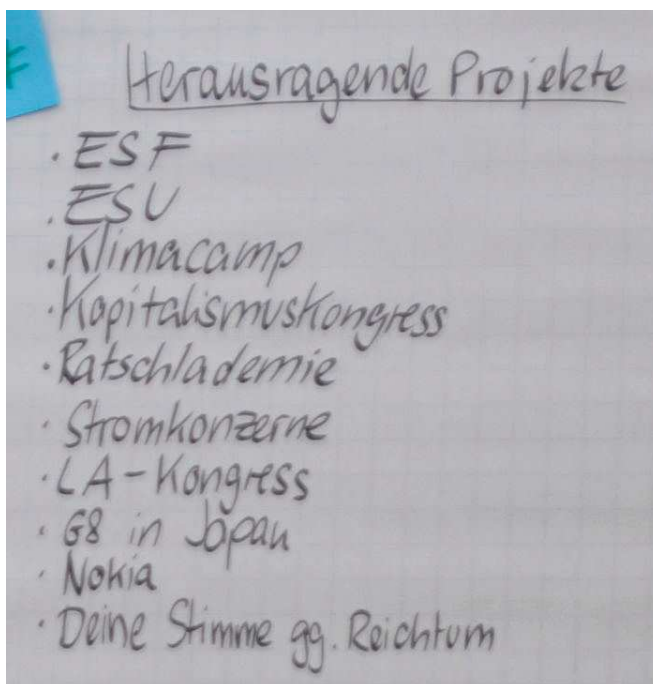 Herausragende Projekte
· ESF
· ESU
· Klimacamp
· Kapitalismuskongress
· Ratschlademie
· Stromkonzerne
· LA-Kongress
· G8 in Japan
· Nokia
· Deine Stimme gg. Reichtum